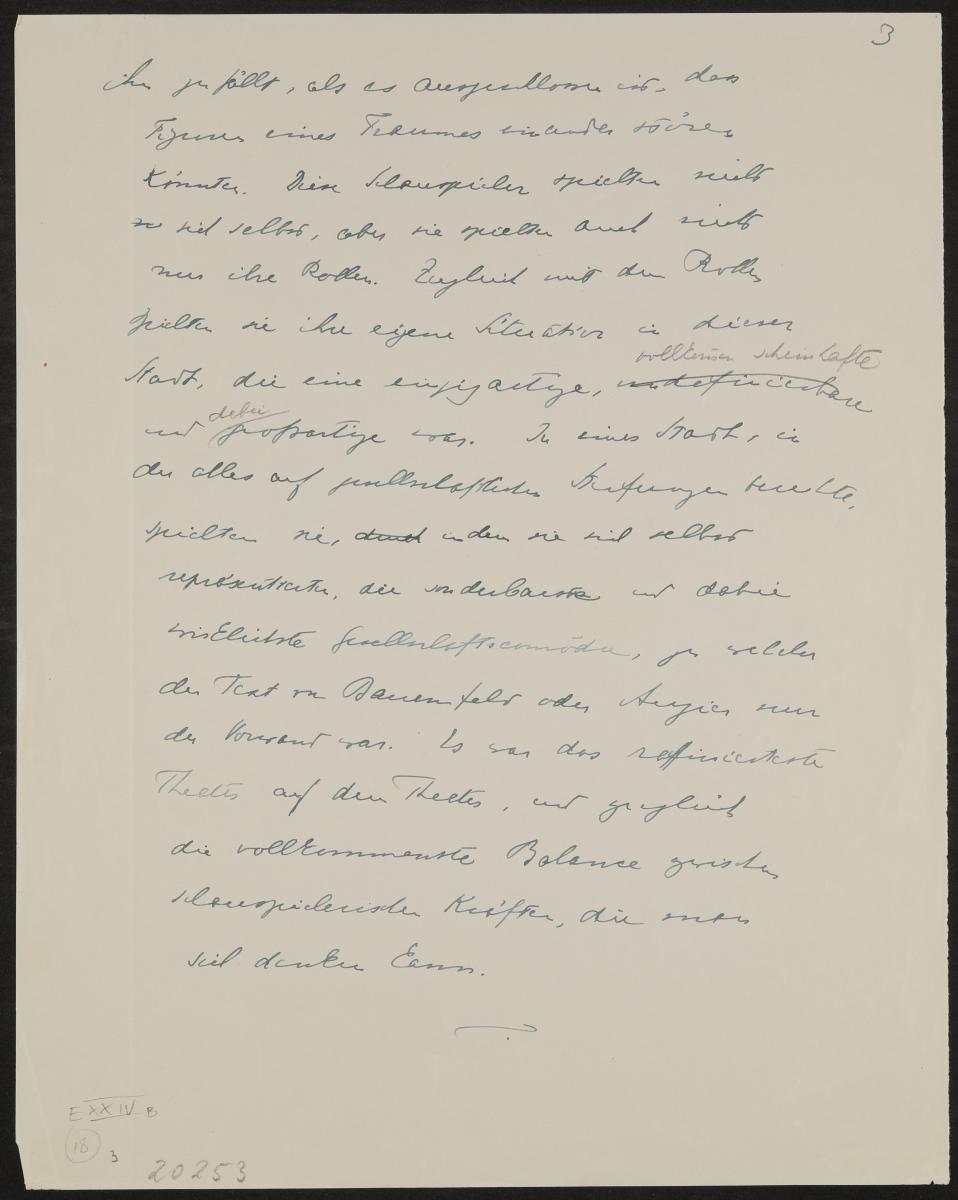 3
ihr zufällt, als es ausgeschlossen ist, dass
Figuren eines Traumes einander stören
könnten. Diese Schauspieler spielten nicht
sich selbst, aber sie spielten auch nicht
nur ihre Rollen. Zugleich mit den Rollen
spielten sie ihre eigene Situation in dieser
vollkommen scheinhafte
Stadt, die eine einzigartige, undefinierbare
dabei
und großartige war. In einer Stadt, in
der alles auf gesellschaftlichen Stufungen beruhte,
spielten sie, durch indem sie sich selbst
repräsentierten, die sonderbarste und dabei
wirklichste Gesellschaftscomödie, zu welcher
der Text von Bauernfeld oder Augier nur
der Vorwand war. Es war das raffinierteste
Theater auf dem Theater, und zugleich
die vollkommenste Balance zwischen
schauspielerischen Kräften, die man
sich denken kann.
E XXIV B
18
3
20253